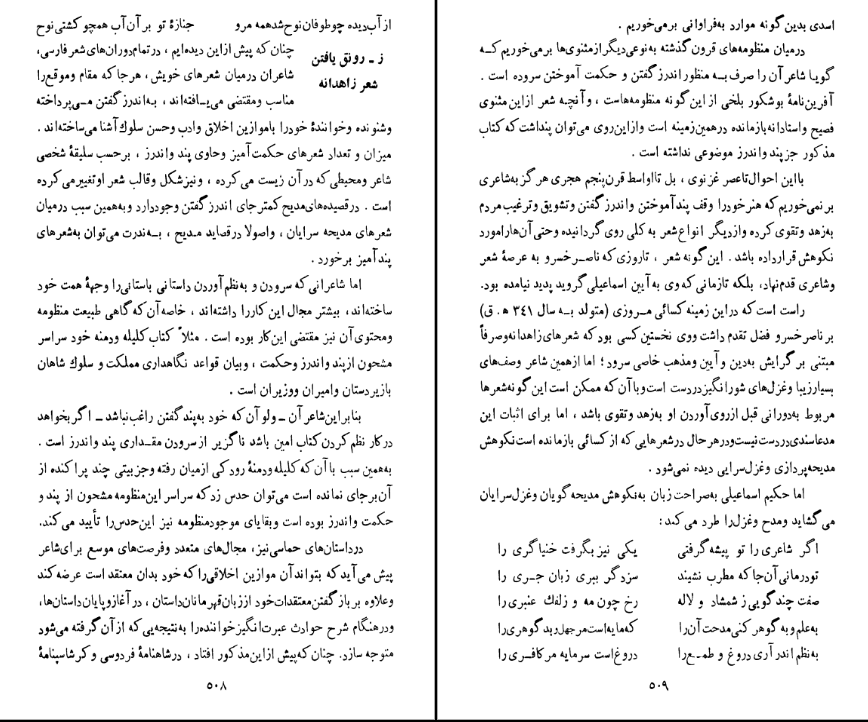 از آب دیده چو طوفان نوح شد همه مرو جنازهٔ تو بر آن آب همچو کشتی نوح
ز ـ رونق یافتن
شعر زاهدانه
چنان که پیش از این دیده‌ایم ، در تمام دوران‌های شعر فارسی،
شاعران در میان شعرهای خویش ، هر جا که مقام و موقع را
مناسب و مقتضی می‌یافته‌اند ، به اندرز گفتن می‌پرداخته
و شنونده و خوانندهٔ خود را با موازین اخلاق و ادب و حسن سلوك آشنا می‌ساخته‌اند .
میزان و تعداد شعرهای حکمت آمیز و حاوی پند و اندرز ، برحسب سلیقهٔ شخصی
شاعر و محیطی که در آن زیست می‌کرده ، و نیز شکل و قالب شعر او تغییر می‌کرده
است . در قصیده‌های مدیح کمتر جای اندرز گفتن وجود دارد و به همین سبب در میان
شعرهای مدیحه سرایان ، و اصولا در قصاید مدیح ، به ندرت می‌توان به شعرهای
پند آمیز برخورد .
اما شاعرانی که سرودن و به نظم آوردن داستانی باستانی را وجههٔ همت خود
ساخته‌اند ، بیشتر مجال این کار را داشته‌اند ، خاصه آن که گاهی طبیعت منظومه
و محتوی آن نیز مقتضی این کار بوده است . مثلاً کتاب کلیله و دمنه خود سراسر
مشحون از پند و اندرز و حکمت ، و بیان قواعد نگاهداری مملکت و سلوك شاهان
با زیردستان و امیران و وزیران است .
بنابر این شاعر آن ـ ولو آن که خود به پند گفتن راغب نباشد ـ اگر بخواهد
در کار نظم کردن کتاب امین باشد ناگزیر از سرودن مقداری پند و اندرز است .
به همین سبب با آن که کلیله و دمنهٔ رودکی از میان رفته و جز بیتی چند پراکنده از
آن بر جای نمانده است می‌توان حدس زد که سراسر این منظومه مشحون از پند و
حکمت و اندرز بوده است و بقایای موجود منظومه نیز این حدس را تأیید می‌کند.
در داستان‌های حماسی نیز ، مجال‌های متعدد و فرصت‌های موسع برای شاعر
پیش می‌آید که بتواند آن موازین اخلاقی را که خود بدان معتقد است عرضه کند
و علاوه بر باز گفتن معتقدات خود از زبان قهرمانان داستان ، در آغاز و پایان داستان‌ها،
و در هنگام شرح حوادث عبرت انگیز خواننده را به نتیجه‌یی که از آن گرفته می‌شود
متوجه سازد. چنان که پیش از این مذکور افتاد ، در شاهنامهٔ فردوسی و کرشاسپنامهٔ
۵۰۸
اسدی بدین گونه موارد به فراوانی برمی‌خوریم .
در میان منظومه‌های قرون گذشته به نوعی دیگر از مثنوی‌ها برمی‌خوریم که
گویا شاعر آن را صرف به منظور اندرز گفتن و حکمت آموختن سروده است .
آفرین نامهٔ بوشکور بلخی از این گونه منظومه‌هاست ، و آنچه شعر از این مثنوی
فصیح و استادانه بازمانده در همین زمینه است و از این روی می‌توان پنداشت که کتاب
مذکور جز پند و اندرز موضوعی نداشته است .
با این احوال تا عصر غزنوی ، بل تا اواسط قرن پنجم هجری هرگز به شاعری
برنمی‌خوریم که هنر خود را وقف پند آموختن و اندرز گفتن و تشویق و ترغیب مردم
به زهد و تقوی کرده و از دیگر انواع شعر به کلی روی گردانیده و حتی آن‌ها را مورد
نکوهش قرار داده باشد . این گونه شعر ، تا روزی که ناصر خسرو به عرصهٔ شعر
و شاعری قدم نهاد، بلکه تا زمانی که وی به آیین اسماعیلی گروید پدید نیامده بود.
راست است که در این زمینه کسائی مروزی (متولد به سال ۳۴۱ ه . ق)
بر ناصر خسرو فضل تقدم داشت و وی نخستین کسی بود که شعرهای زاهدانه و صرفاً
مبتنی بر گرایش به دین و آیین و مذهب خاصی سرود؛ اما از همین شاعر وصف‌های
بسیار زیبا و غزل‌های شورانگیز در دست است و با آن که ممکن است این گونه شعرها
مربوط به دورانی قبل از روی آوردن او به زهد و تقوی باشد ، اما برای اثبات این
مدعا سندی در دست نیست و در هر حال در شعرهایی که از کسائی بازمانده است نکوهش
مدیحه پردازی و غزل سرایی دیده نمی‌شود .
اما حکیم اسماعیلی به صراحت زبان به نکوهش مدیحه گویان و غزل سرایان
می‌گشاید و مدح و غزل را طرد می‌کند :
اگر شاعری را تو پیشه گرفتی یکی نیز بگرفت خنیاگری را
تو درمانی آن جا که مطرب نشیند سزد گر ببری زبان جری را
صفت چند گویی ز شمشاد و لاله رخ چون مه و زلفك عنبری را
به علم و به گوهر کنی مدحت آن را که مایه است مر جهل و بدگوهری را
به نظم اندر آری دروغ و طمع را دروغ است سرمایه مر کافری را
۵۰۹